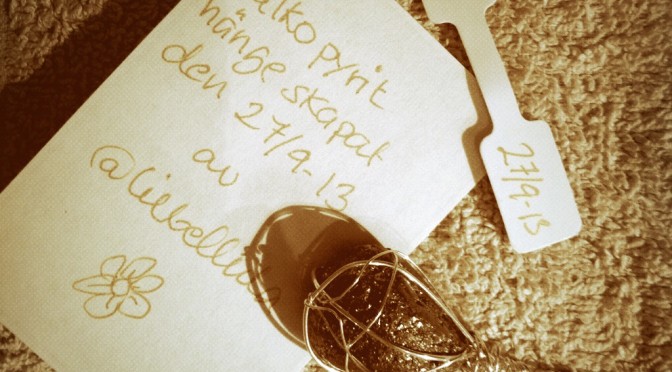 alkopyrit
hänge skapat
den 27/9-13
av
27/9-13